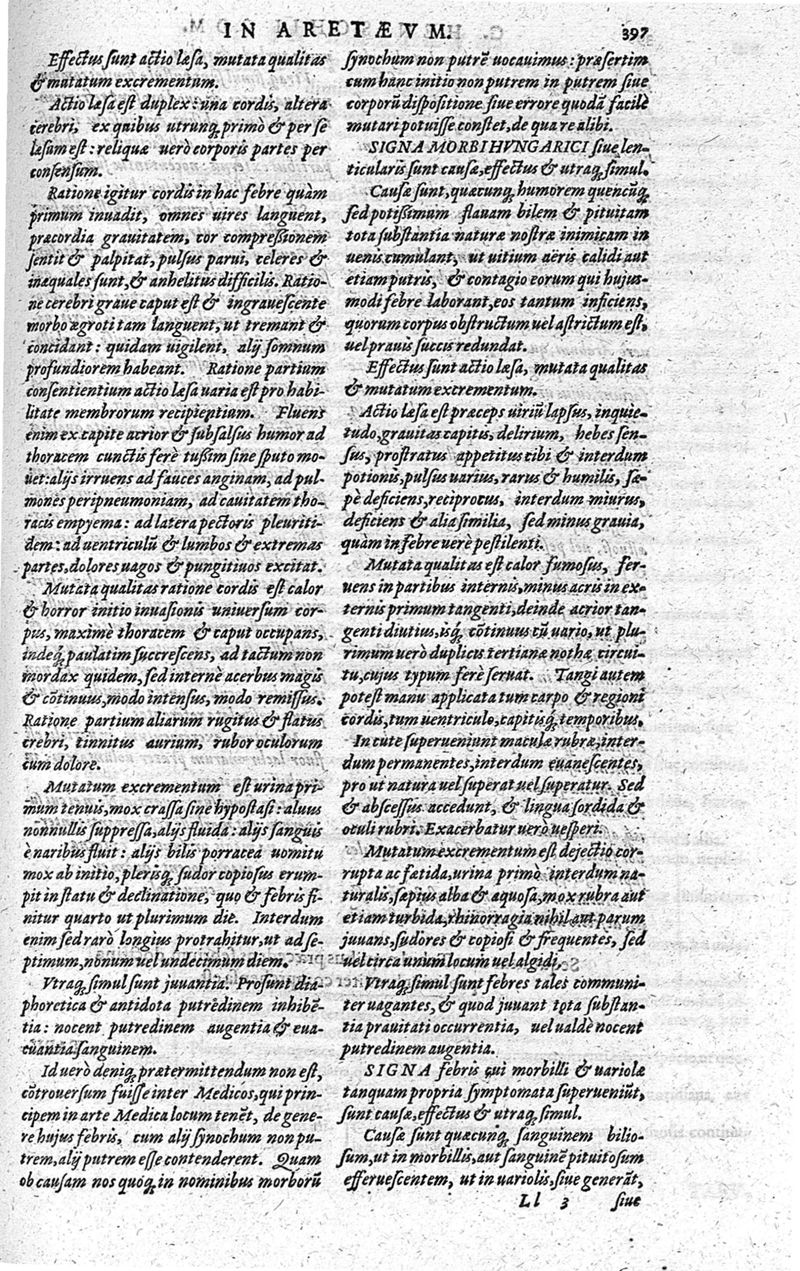 IN ARETÆVM.
397
Effectus sunt actio læsa, mutata qualitas
& mutatum excrementum.
Actio læsa est duplex: una cordis, altera
cerebri, ex quibus utrunq; primò & per se
læsum est: reliquæ uerò corporis partes per
consensum.
Ratione igitur cordis in hac febre quàm
primum inuadit, omnes uires languent,
præcordia grauitatem, cor compreßionem
sentit & palpitat, pulsus parui, celeres &
inæquales sunt, & anhelitus difficilis. Ratio-
ne cerebri graue caput est & ingrauescente
morbo ægroti tam languent, ut tremant &
concidant: quidam uigilent, alij somnum
profundiorem habeant. Ratione partium
consentientium actio læsa uaria est pro habi-
litate membrorum recipientium. Fluens
enim ex capite acrior & subsalsus humor ad
thoracem cunctis ferè tußim sine sputo mo-
uet: alijs irruens ad fauces anginam, ad pul-
mones peripneumoniam, ad cauitatem tho-
racis empyema: ad latera pectoris pleuriti-
dem: ad uentriculũ & lumbos & extremas
partes, dolores uagos & pungitiuos excitat.
Mutata qualitas ratione cordis est calor
& horror initio inuasionis uniuersum cor-
pus, maximè thoracem & caput occupans,
indeq; paulatim succrescens, ad tactum non
mordax quidem, sed internè acerbus magis
& cõtinuus, modo intensus, modo remissus.
Ratione partium aliarum rugitus & flatus
crebri, tinnitus aurium, rubor oculorum
cum dolore.
Mutatum excrementum est urina pri-
mum tenuis, mox crassa sine hypostasi: aluus
nonnullis suppressa, alijs fluida: alijs sanguis
è naribus fluit: alijs bilis porracea uomitu
mox ab initio, plerisq; sudor copiosus erum-
pit in statu & declinatione, quo & febris fi-
nitur quarto ut plurimum die. Interdum
enim sed rarò longius protrahitur, ut ad se-
ptimum, nonum uel undecimum diem.
Vtraq; simul sunt juuantia. Prosunt dia-
phoretica & antidota putredinem inhibẽ-
tia: nocent putredinem augentia & eua-
cuantia sanguinem.
Id uerò deniq; prætermittendum non est,
cõtrouersum fuisse inter Medicos, qui prin-
cipem in arte Medica locum tenẽt, de gene-
re hujus febris, cum alij synochum non pu-
trem, alij putrem esse contenderent. Quam
ob causam nos quoq; in nominibus morborũ
synochum non putrẽ uocauimus: præsertim
cum hanc initio non putrem in putrem siue
corporũ dispositione siue errore quodã facilè
mutari potuisse constet, de qua re alibi.
SIGNA MORBI HVNGARICI siue len-
ticularis sunt causæ, effectus & utraq; simul.
Causæ sunt, quæcunq; humorem quencũq;
sed potißimum flauam bilem & pituitam
tota substantia naturæ nostræ inimicam in
uenis cumulant, ut uitium aëris calidi aut
etiam putris, & contagio eorum qui hujus-
modi febre laborant, eos tantum inficiens,
quorum corpus obstructum uel astrictum est,
uel prauis succis redundat.
Effectus sunt actio læsa, mutata qualitas
& mutatum excrementum.
Actio læsa est præceps uiriũ lapsus, inquie-
tudo, grauitas capitis, delirium, hebes sen-
sus, prostratus appetitus cibi & interdum
potionis, pulsus uarius, rarus & humilis, sæ-
pè deficiens, reciprocus, interdum miurus,
deficiens & alia similia, sed minus grauia,
quàm in febre uerè pestilenti.
Mutata qualitas est calor fumosus, fer-
uens in partibus internis, minus acris in ex-
ternis primum tangenti, deinde acrior tan-
genti diutius, isq; cõtinuus cũ uario, ut plu-
rimum uerò duplicis tertianæ nothæ circui-
tu, cujus typum ferè seruat. Tangi autem
potest manu applicata tum carpo & regioni
cordis, tum uentriculo, capitisq; temporibus.
In cute superueniunt maculæ rubræ, inter-
dum permanentes, interdum euanescentes,
pro ut natura uel superat uel superatur. Sed
& abscessus accedunt, & lingua sordida &
oculi rubri. Exacerbatur uerò uesperi.
Mutatum excrementum est dejectio cor-
rupta ac fœtida, urina primo interdum na-
turalis, sæpius alba & aquosa, mox rubra aut
etiam turbida, rhinorragia nihil aut parum
juuans, sudores & copiosi & frequentes, sed
uel circa unum locum uel algidi.
Vtraq; simul sunt febres tales communi-
ter uagantes, & quod juuant tota substan-
tia prauitati occurrentia, uel ualdè nocent
putredinem augentia.
SIGNA febris cui morbilli & uariolæ
tanquam propria symptomata superueniũt,
sunt causæ, effectus & utraq; simul.
Causæ sunt quæcunq; sanguinem bilio-
sum, ut in morbillis, aut sanguinẽ pituitosum
efferuescentem, ut in uariolis, siue generãt,
Ll 3 siue